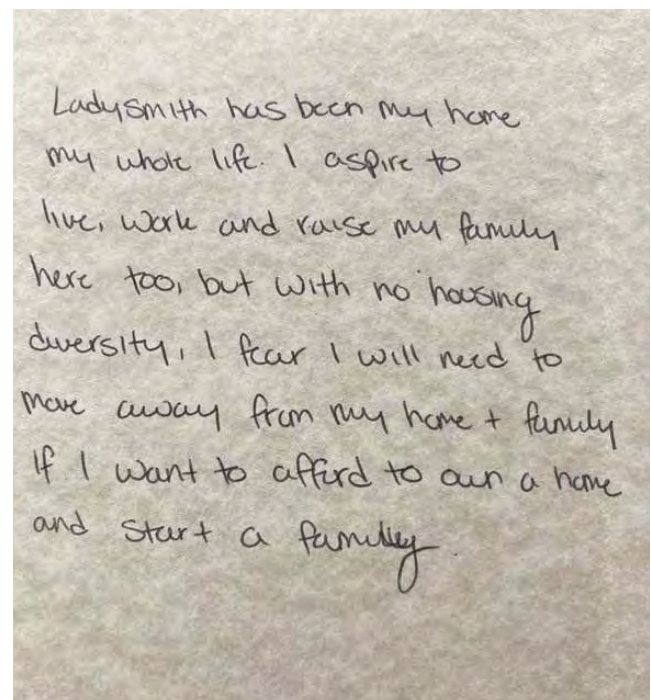 Ladysmith has been my home
my whole life. I aspire to
live, work and raise my family
here too, but with no housing
diversity, I fear I will need to
move away from my home + family
If I want to afford to own a home
and start a family.